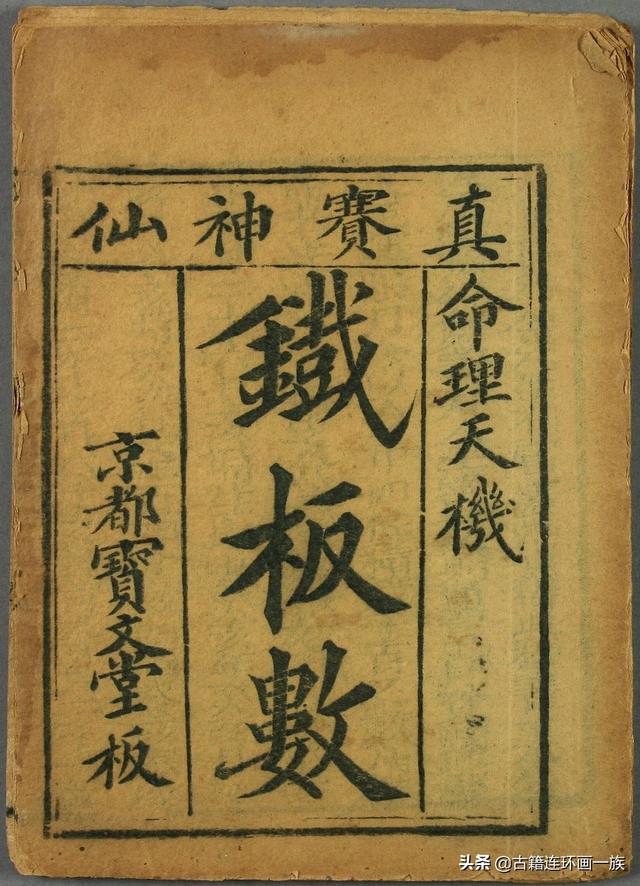 真賽神仙
命理天機
鐵板數
京都寶文堂板
头条 @古籍连环画一族